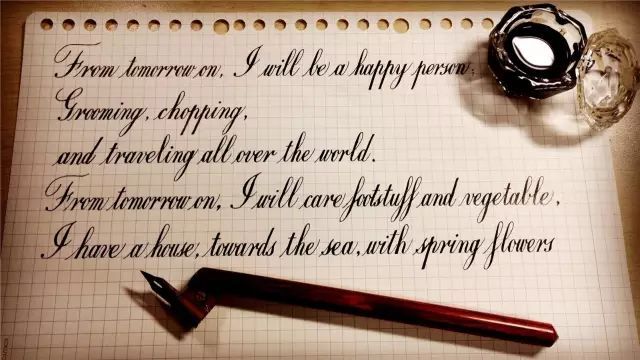 From tomorrow on, I will be a happy person;
Grooming, chopping,
and traveling all over the world.
From tomorrow on, I will care footstuff and vegetable,
I have a house, towards the sea, with spring flowers